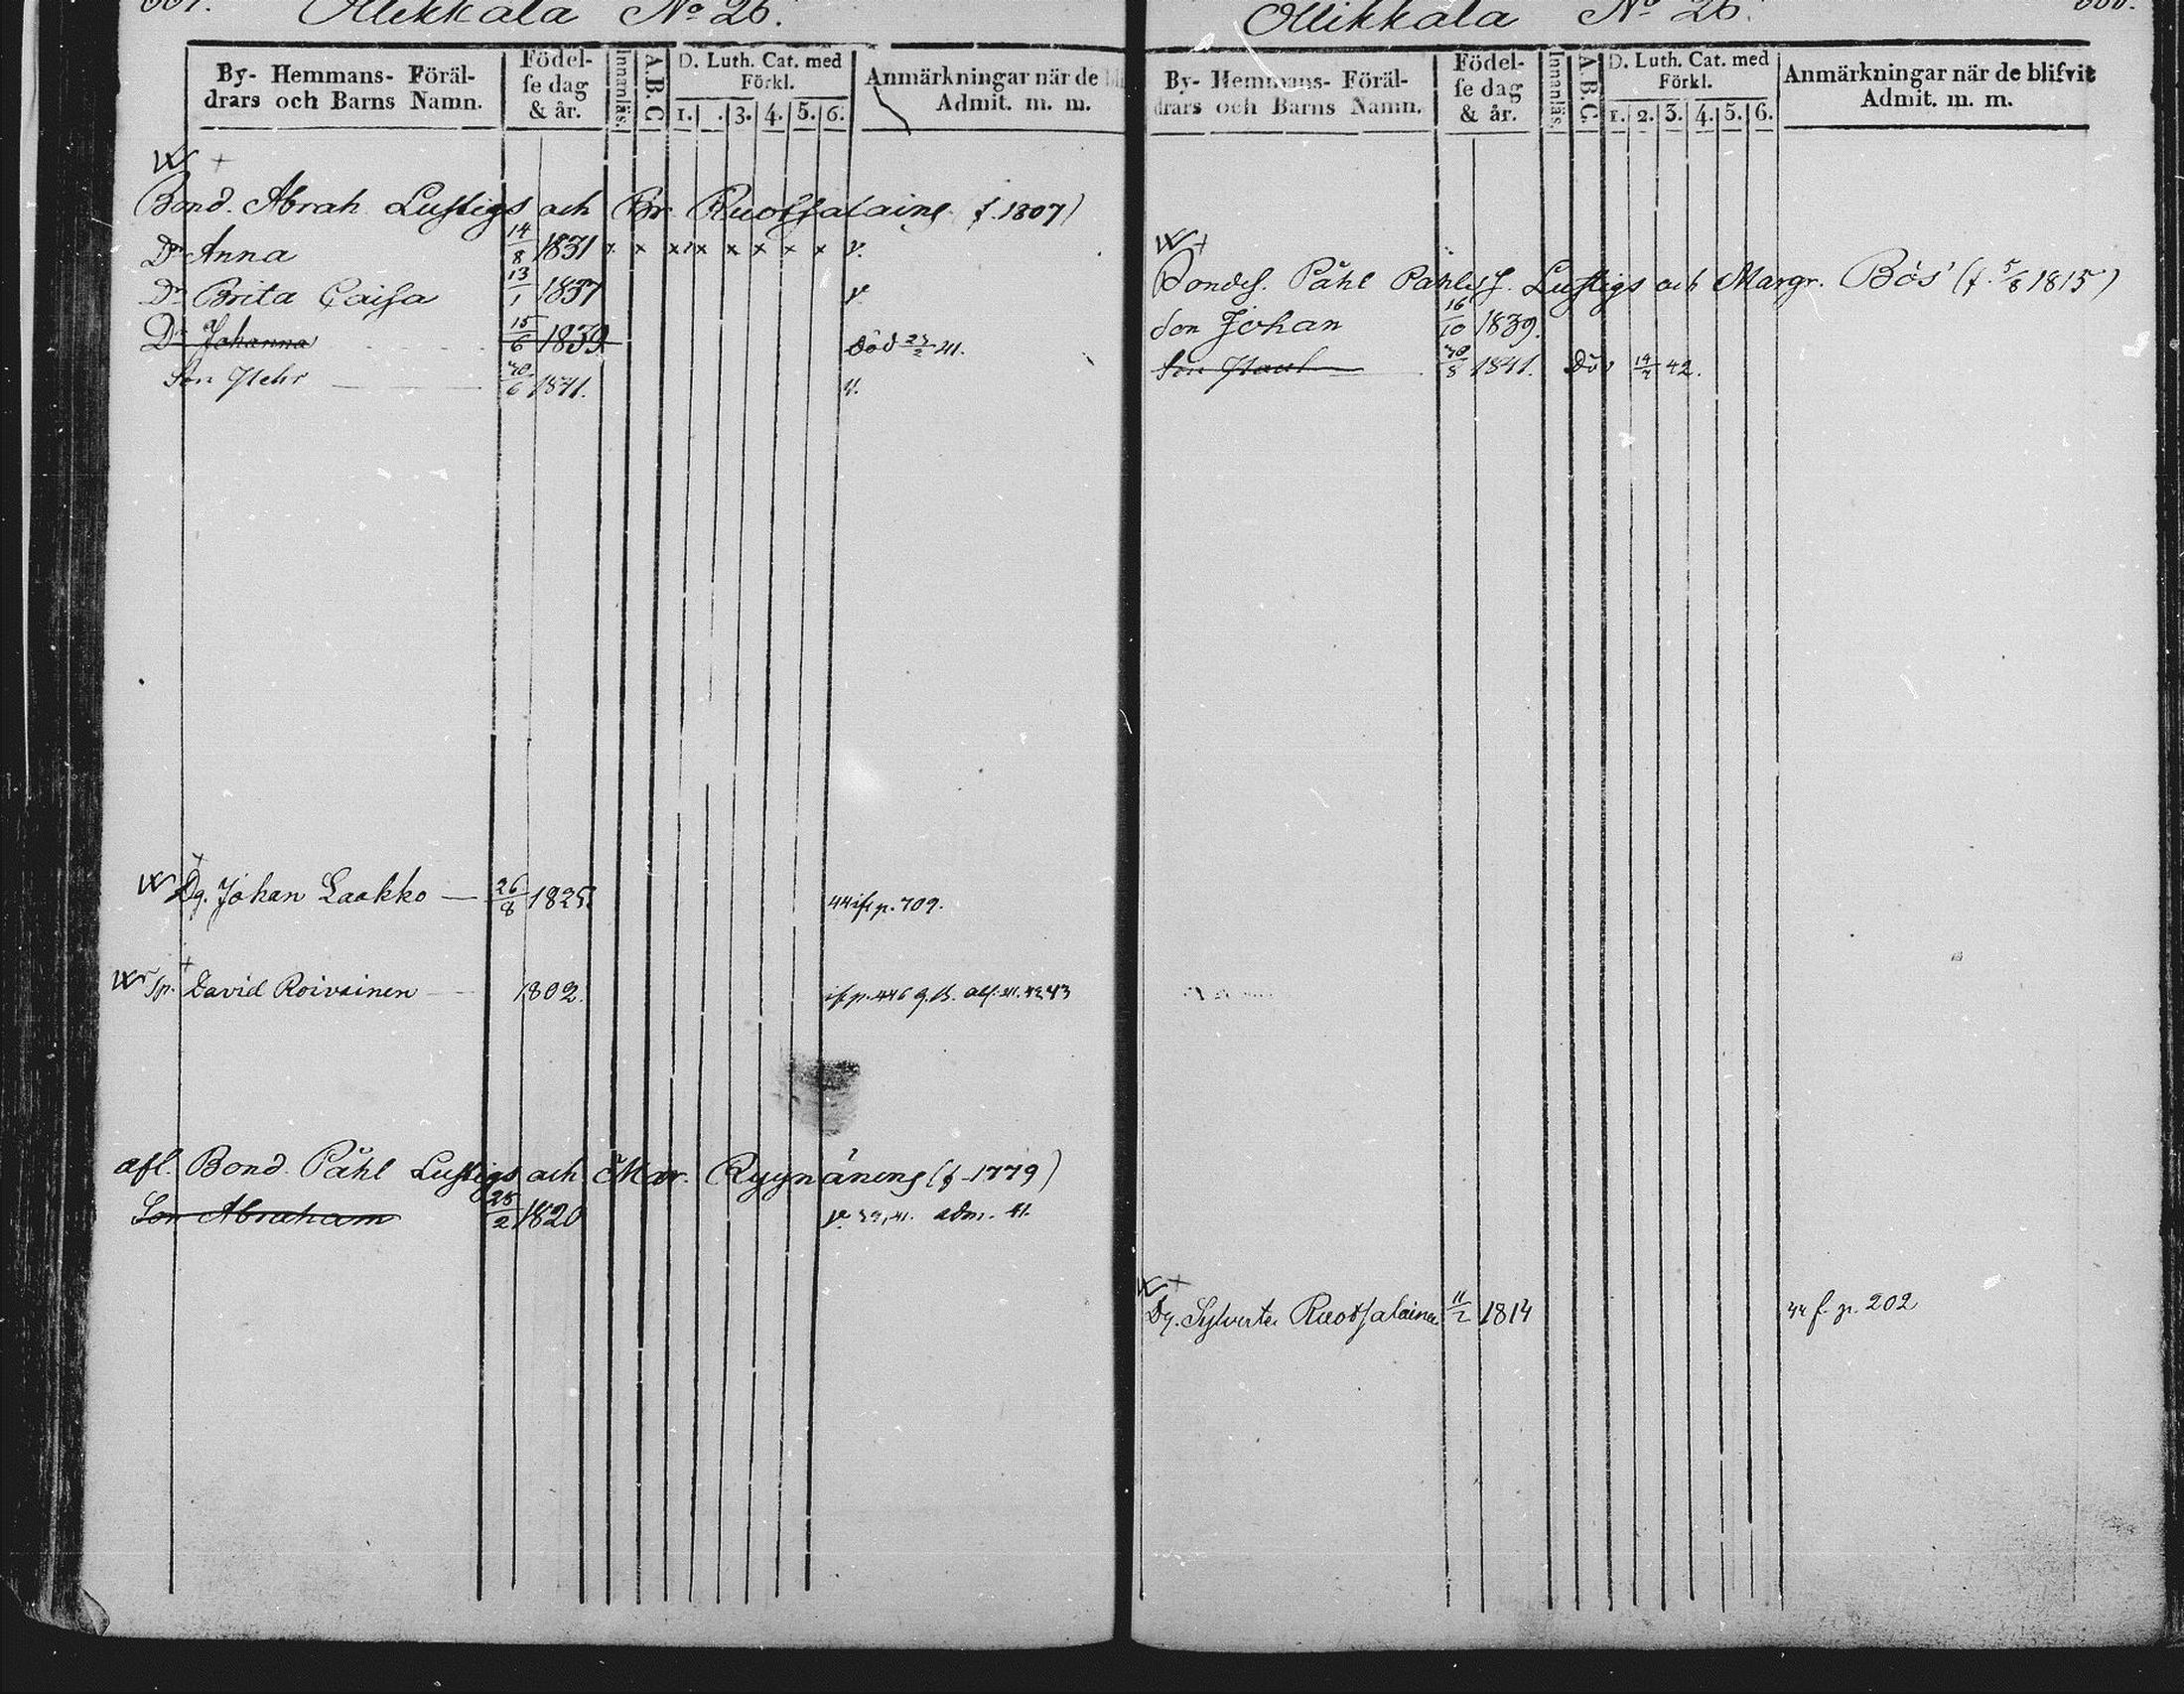 Ollikkala No 26.
By- Hemmans- Föräl-
drars och Barns Namn.
Födel-
se dag
& år.
Innanläs.
A.B.C
D. Luth. Cat. med
Förkl.
1. 3. 4. 5. 6.
Anmärkningar när de
Admit. m. m.
Bond. Abrah Lustigs och Br. Ruotsalains f. 1807)
Dr Anna 14/8 1831 x x x x x x x v.
Dr Brita Caisa 13/1 1837 v
Dr Johanna 15/6 1839 död 41.
Son 30/6 1841. v.
Dg. Johan Laakko 26/8 1825. 44 p. 709.
David Roivainen 1802. p. 446
afl. Bond. Påhl Lustigs och Mar. Ryynänens (f. 1779)
Son Abraham 25/2 1820 adm. 41.
Ollikkala No 26.
By- Hemmans- Föräl-
drars och Barns Namn.
Födel-
se dag
& år.
Innanläs.
A.B.C.
D. Luth. Cat. med
Förkl.
1. 2. 3. 4. 5. 6.
Anmärkningar när de blifvit
Admit. m. m.
Bondes. Påhl Påhls S. Lustigs och Margr. Bös' (f. 5/8 1815)
Son Johan 16/10 1839.
Son 30/8 1841. Död 42.
Dg. Sylvester Ruotsalainen 11/2 1814 f. p. 202